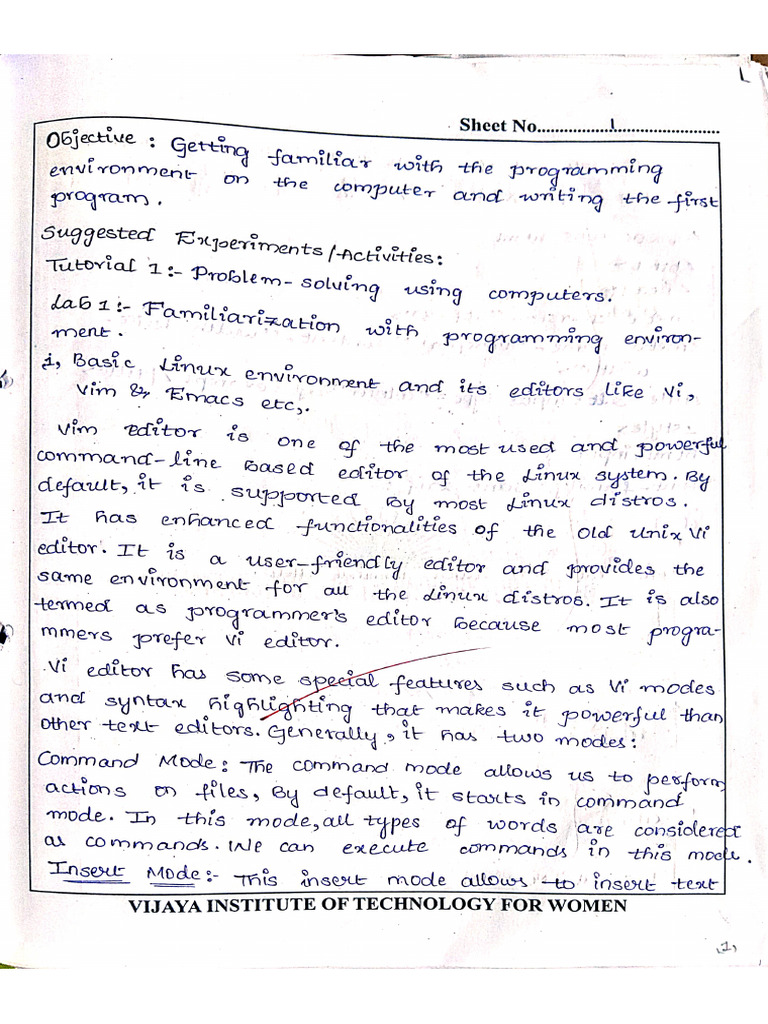 Sheet No..................1.........................
Objective : Getting familiar with the programming
environment on the computer and writing the first
program.
Suggested Experiments/Activities:
Tutorial 1:- Problem-solving using computers.
Lab 1:- Familiarization with programming environ-
ment.
1, Basic Linux environment and its editors like Vi,
Vim & Emacs etc,.
Vim Editor is one of the most used and powerful
command-line based editor of the Linux system. By
default, it is supported by most Linux distros.
It has enhanced functionalities of the old Unix Vi
editor. It is a user-friendly editor and provides the
same environment for all the Linux distros. It is also
termed as programmer's editor because most progra-
mmers prefer Vi editor.
Vi editor has some special features such as Vi modes
and syntax highlighting that makes it powerful than
other text editors. Generally, it has two modes:
Command Mode: The command mode allows us to perform
actions on files, By default, it starts in command
mode. In this mode, all types of words are considered
as commands. We can execute commands in this mode.
Insert Mode:- This insert mode allows to insert text
VIJAYA INSTITUTE OF TECHNOLOGY FOR WOMEN
1,